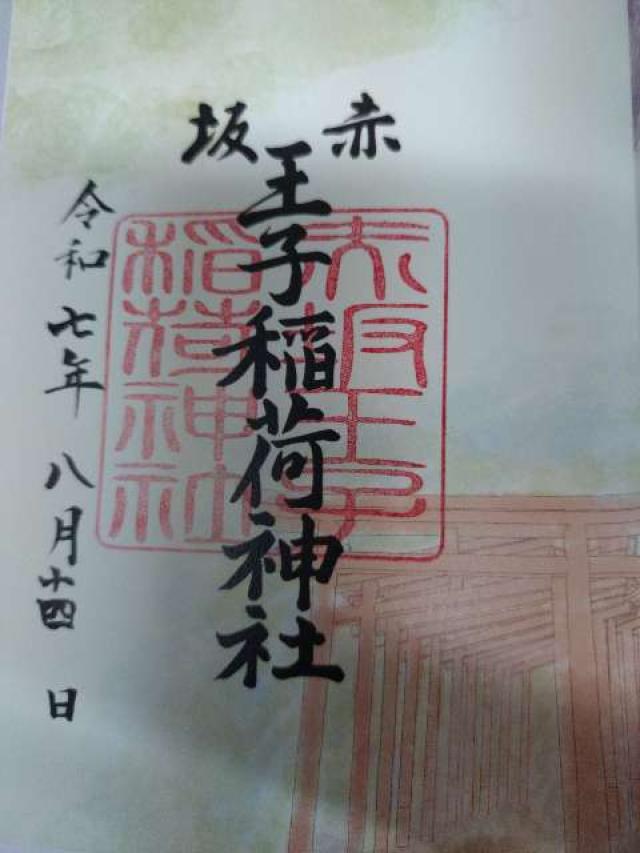 赤坂
王子稲荷神社
令和七年八月十四日
赤坂王子
稲荷神社